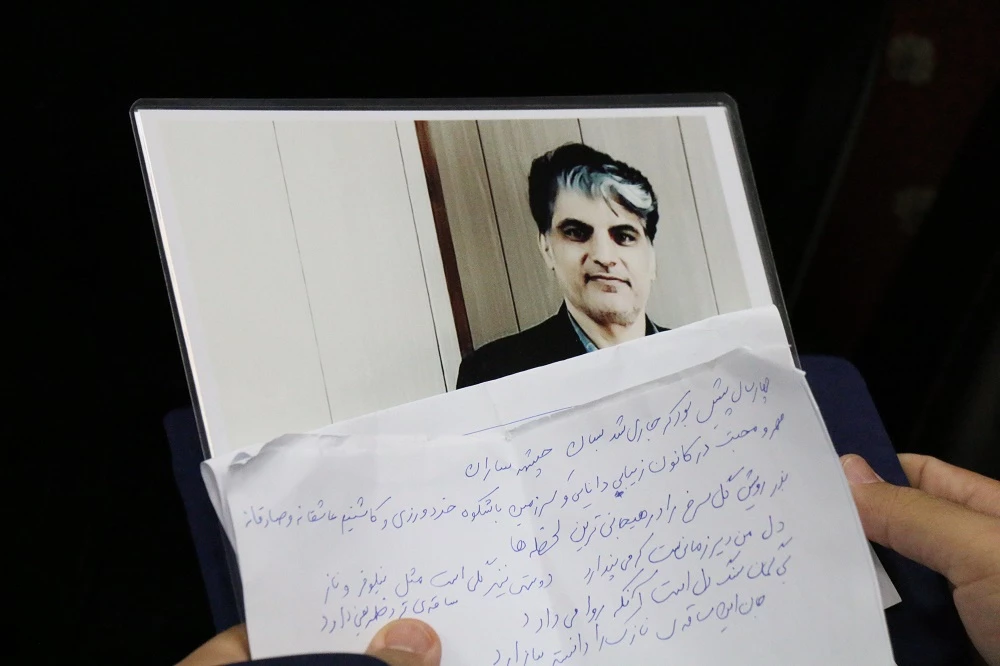 چهار سال پیش بود که جاری شد بسان چشمه ساران
مهر و محبت در کانون زیبایی دانایی و سرزمین باشکوه خردورزی و کاشتیم عاشقانه و صادقانه
بذر رویش گل سرخ را در هیجانی ترین لحظه ها
دل من دیر زمانی ست که می پندارد دوستی نیز گلی است مثل نیلوفر و ناز
ساقه ی ترد ظریفی دارد
بی گمان سنگ دل است آنکه روا می دارد
جان این ساقه ی نازک را دانسته بیازارد